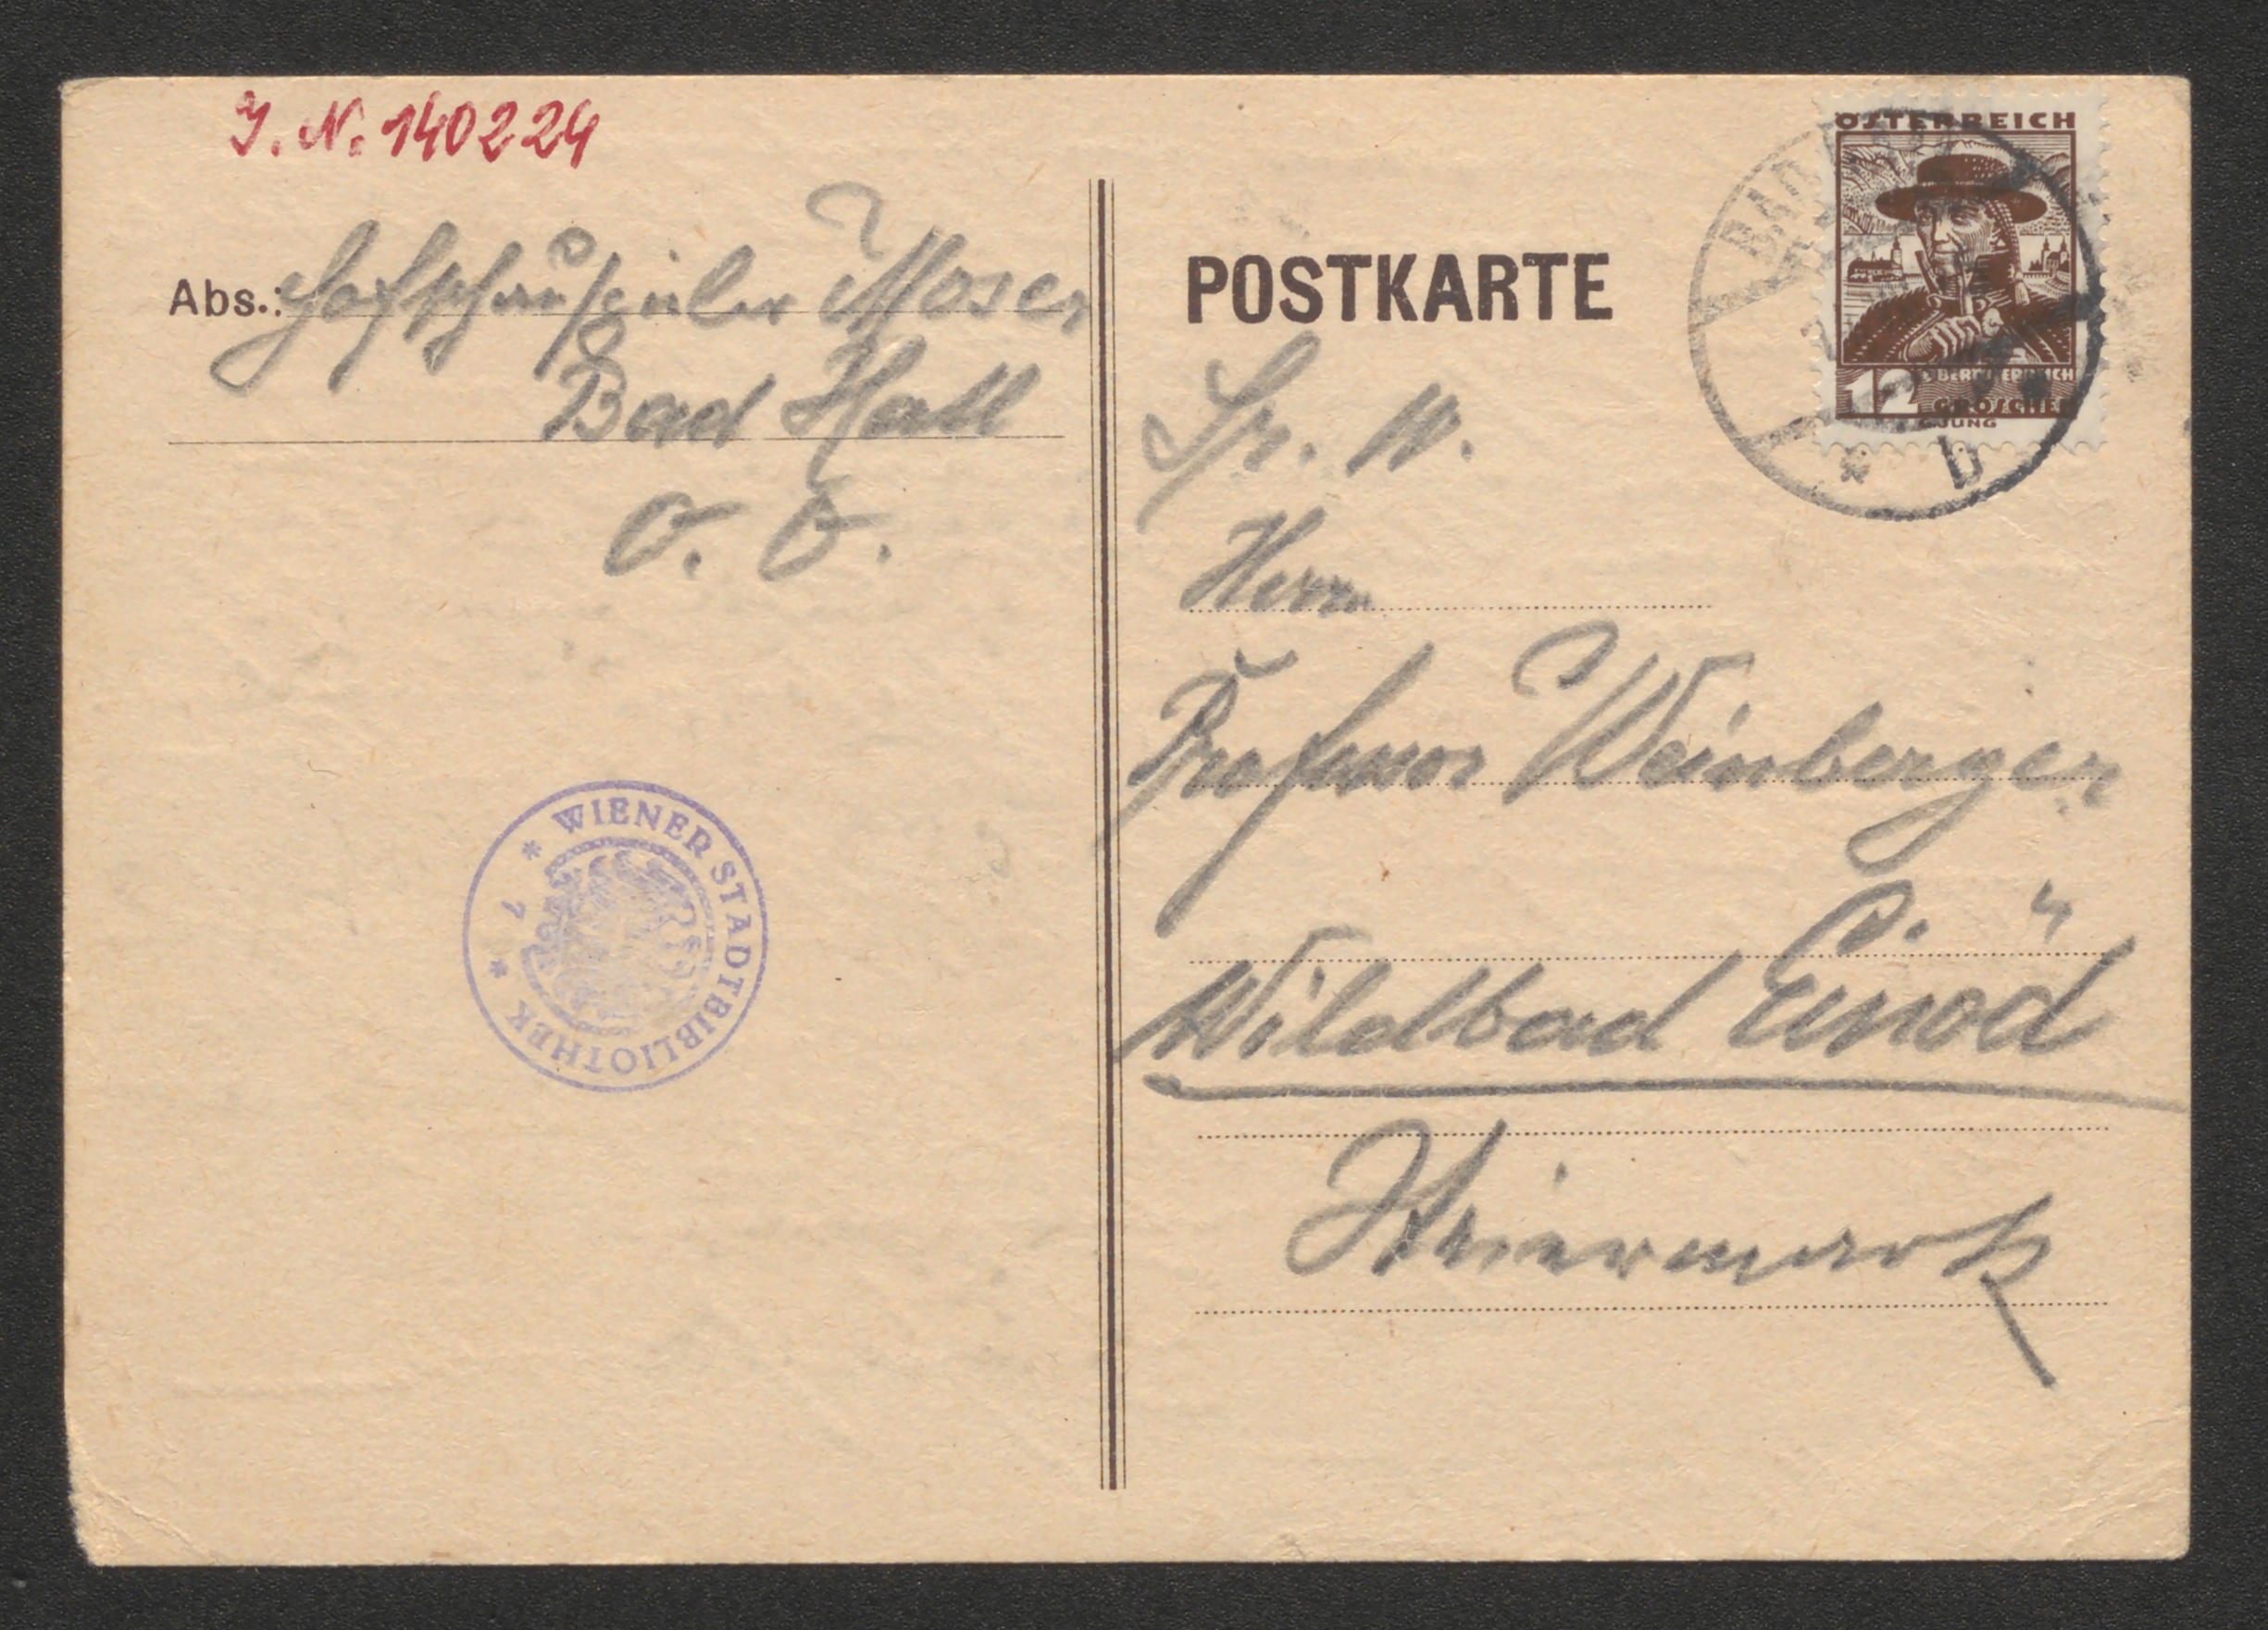 J. N. 140224
Abs.: Hofschauspieler Moser
Bad Hall
O. Ö.
WIENER STADTBIBLIOTHEK
7
POSTKARTE
ÖSTERREICH
12 GROSCHEN
OBERÖSTERREICH
BAD
b
Sr. W.
Herrn
Professor Weinberger
Wildbad Einöd
Steiermark